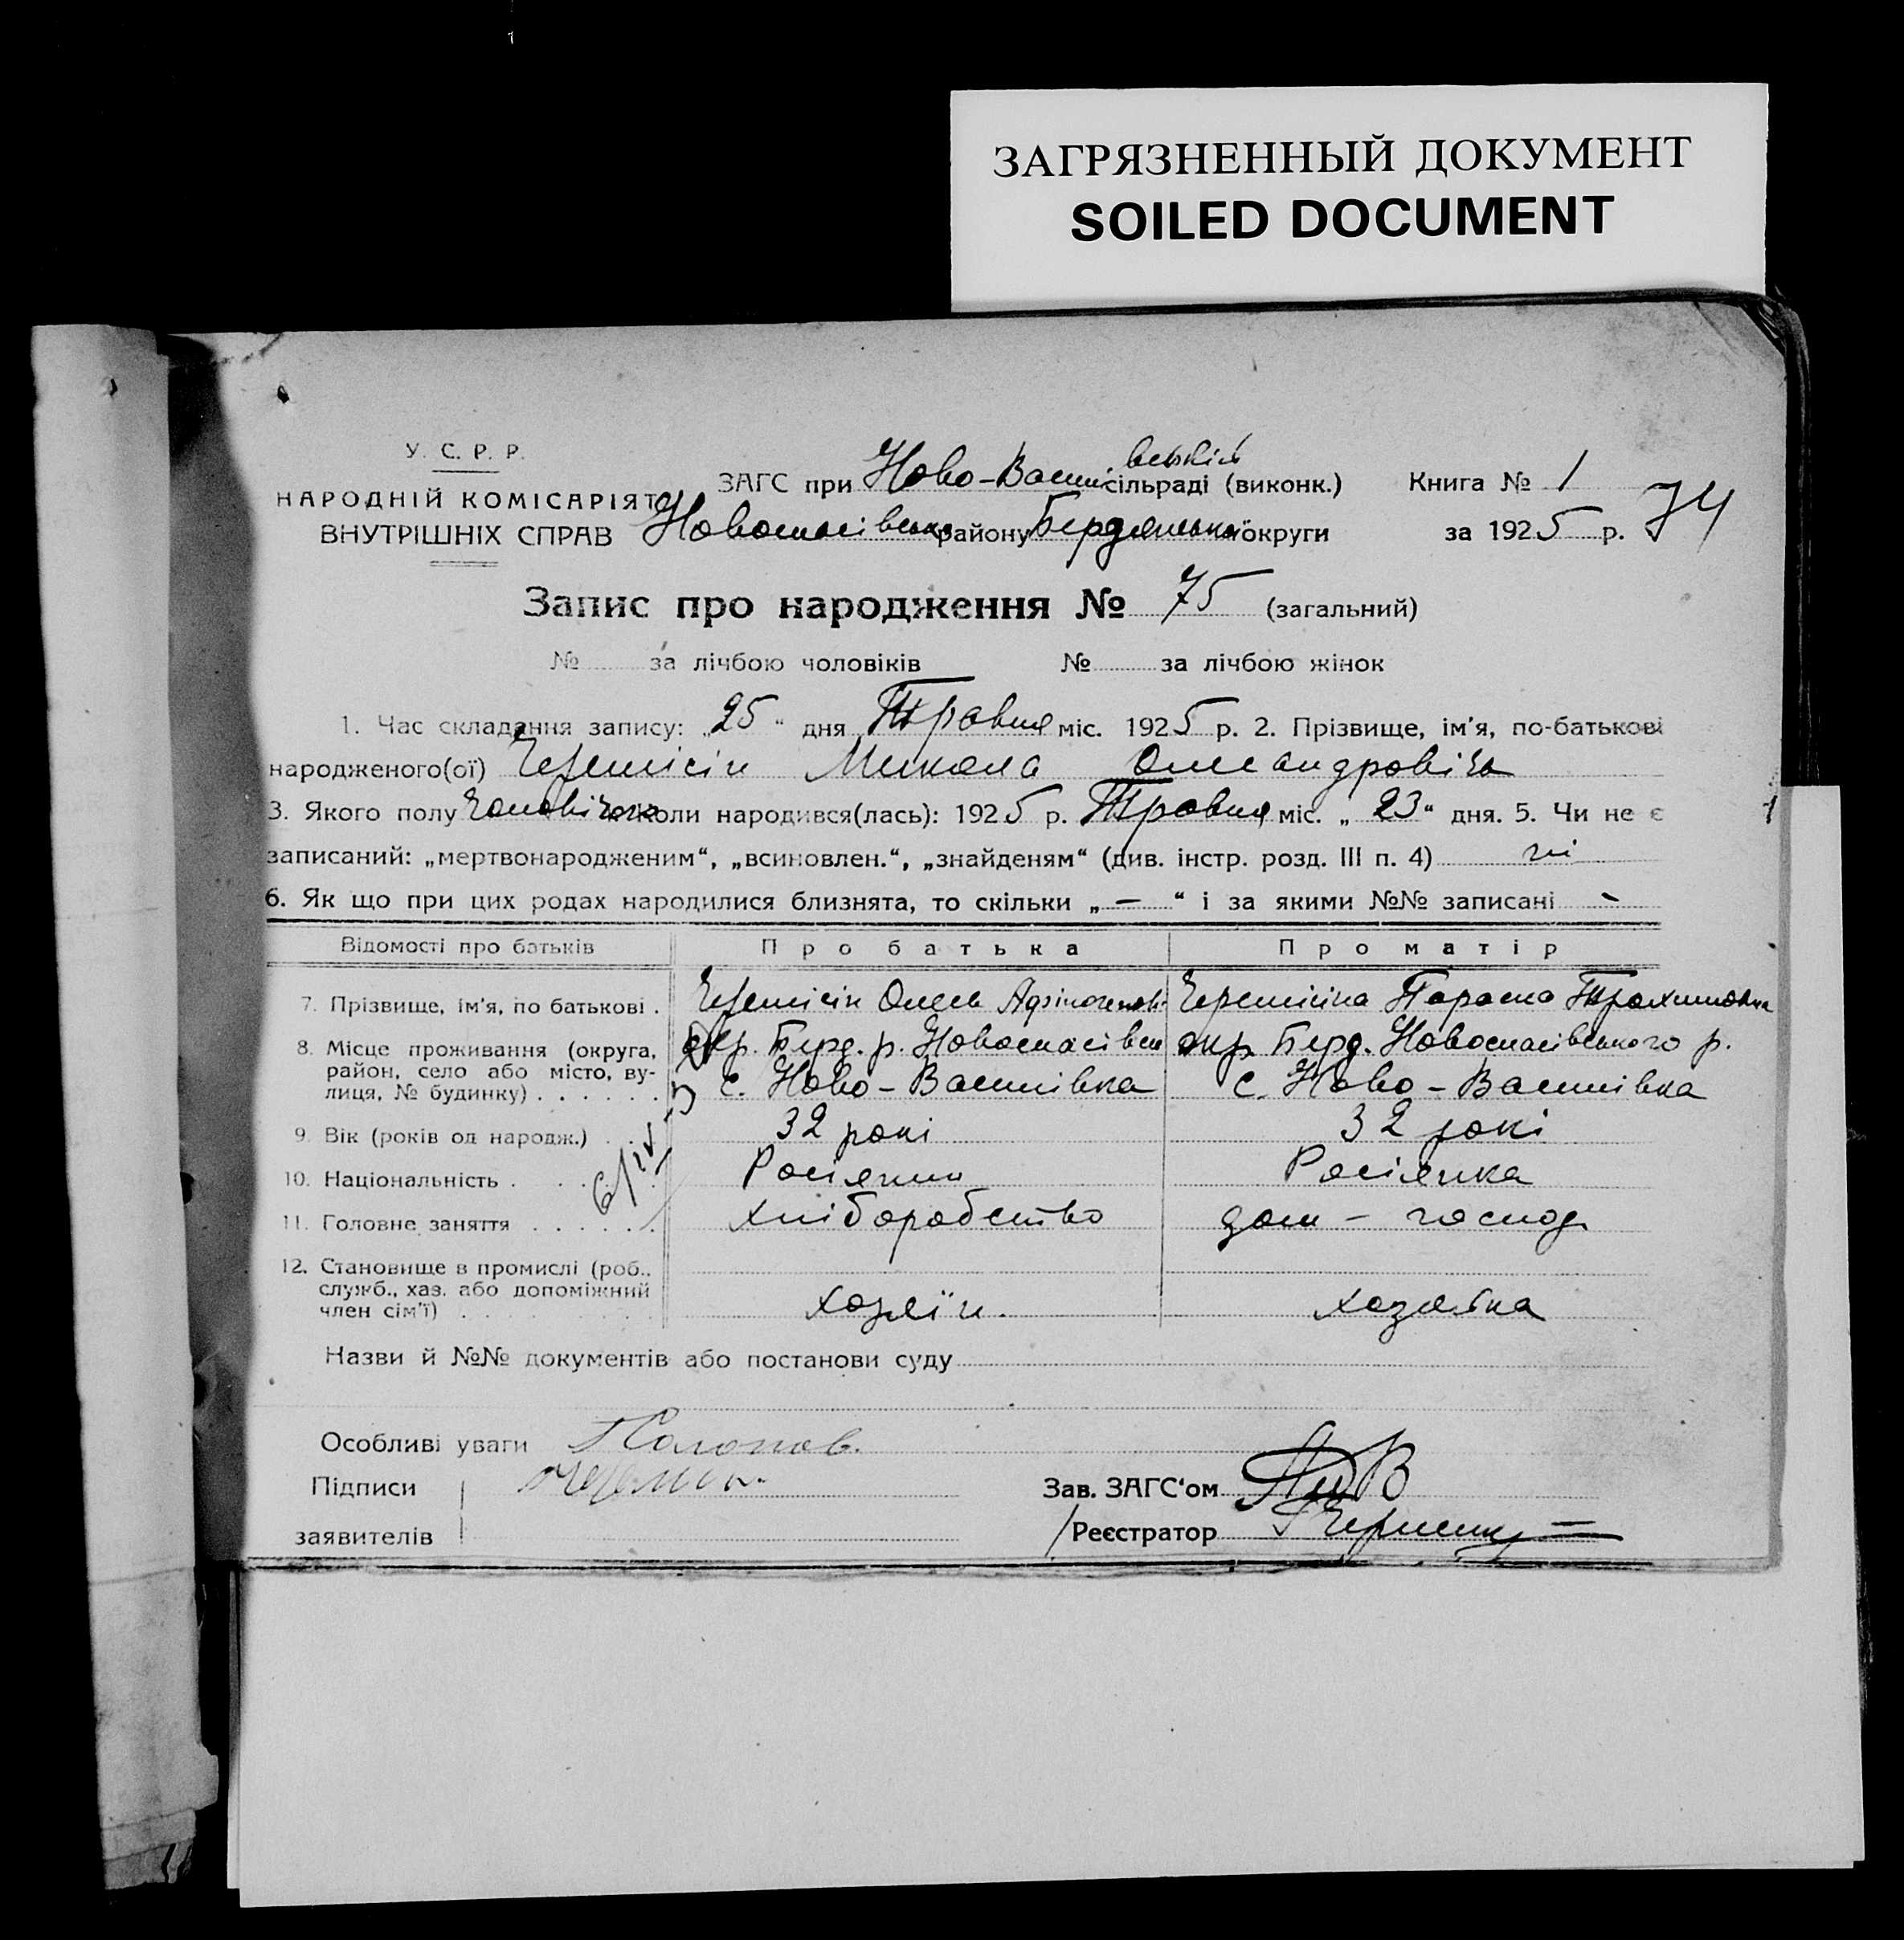 ЗАГРЯЗНЕННЫЙ ДОКУМЕНТ
SOILED DOCUMENT
У. С. Р. Р.
НАРОДНІЙ КОМІСАРІЯТ
ВНУТРІШНІХ СПРАВ
ЗАГС при Ново-Василівській сільраді (виконк.) Книга № 1
Новоспасівсько району Бердянської округи за 1925 р. 74
Запис про народження № 75 (загальний)
№ за лічбою чоловіків № за лічбою жінок
1. Час складання запису: „25" дня Травня міс. 1925 р. 2. Прізвище, ім'я, по-батькові
народженого(ої) Черемісін Микола Олександровіч
3. Якого полу коли народився(лась): 1925 р. Травня міс. „23" дня. 5. Чи не є
записаний: „мертвонародженим", „всиновлен.", „знайденям" (див. інстр. розд. III п. 4) ні
6. Як що при цих родах народилися близнята, то скільки „—" і за якими №№ записані -
Відомості про батьків Про батька Про матір
7. Прізвище, ім'я, по батькові . Черемісін Черемісіна Параска
8. Місце проживання (округа, окр. Берд. р. Новоспасівськ окр. Берд. Новоспасівського р.
район, село або місто, ву- с. Ново-Василівка с. Ново-Василівка
лиця, № будинку) . . . . . .
9. Вік (років од народж.) . . 32 рокі 32 рокі
10. Національність . . . . Росіянин Росіянка
11. Головне заняття . . . . . . хліборобство дом - господ
12. Становище в промислі (роб.,
служб., хаз. або допоміжний хозяїн. хозяйка
член сім'ї) . . .
Назви й №№ документів або постанови суду
Особливі уваги
Підписи Зав. ЗАГС'ом
заявителів Реєстратор